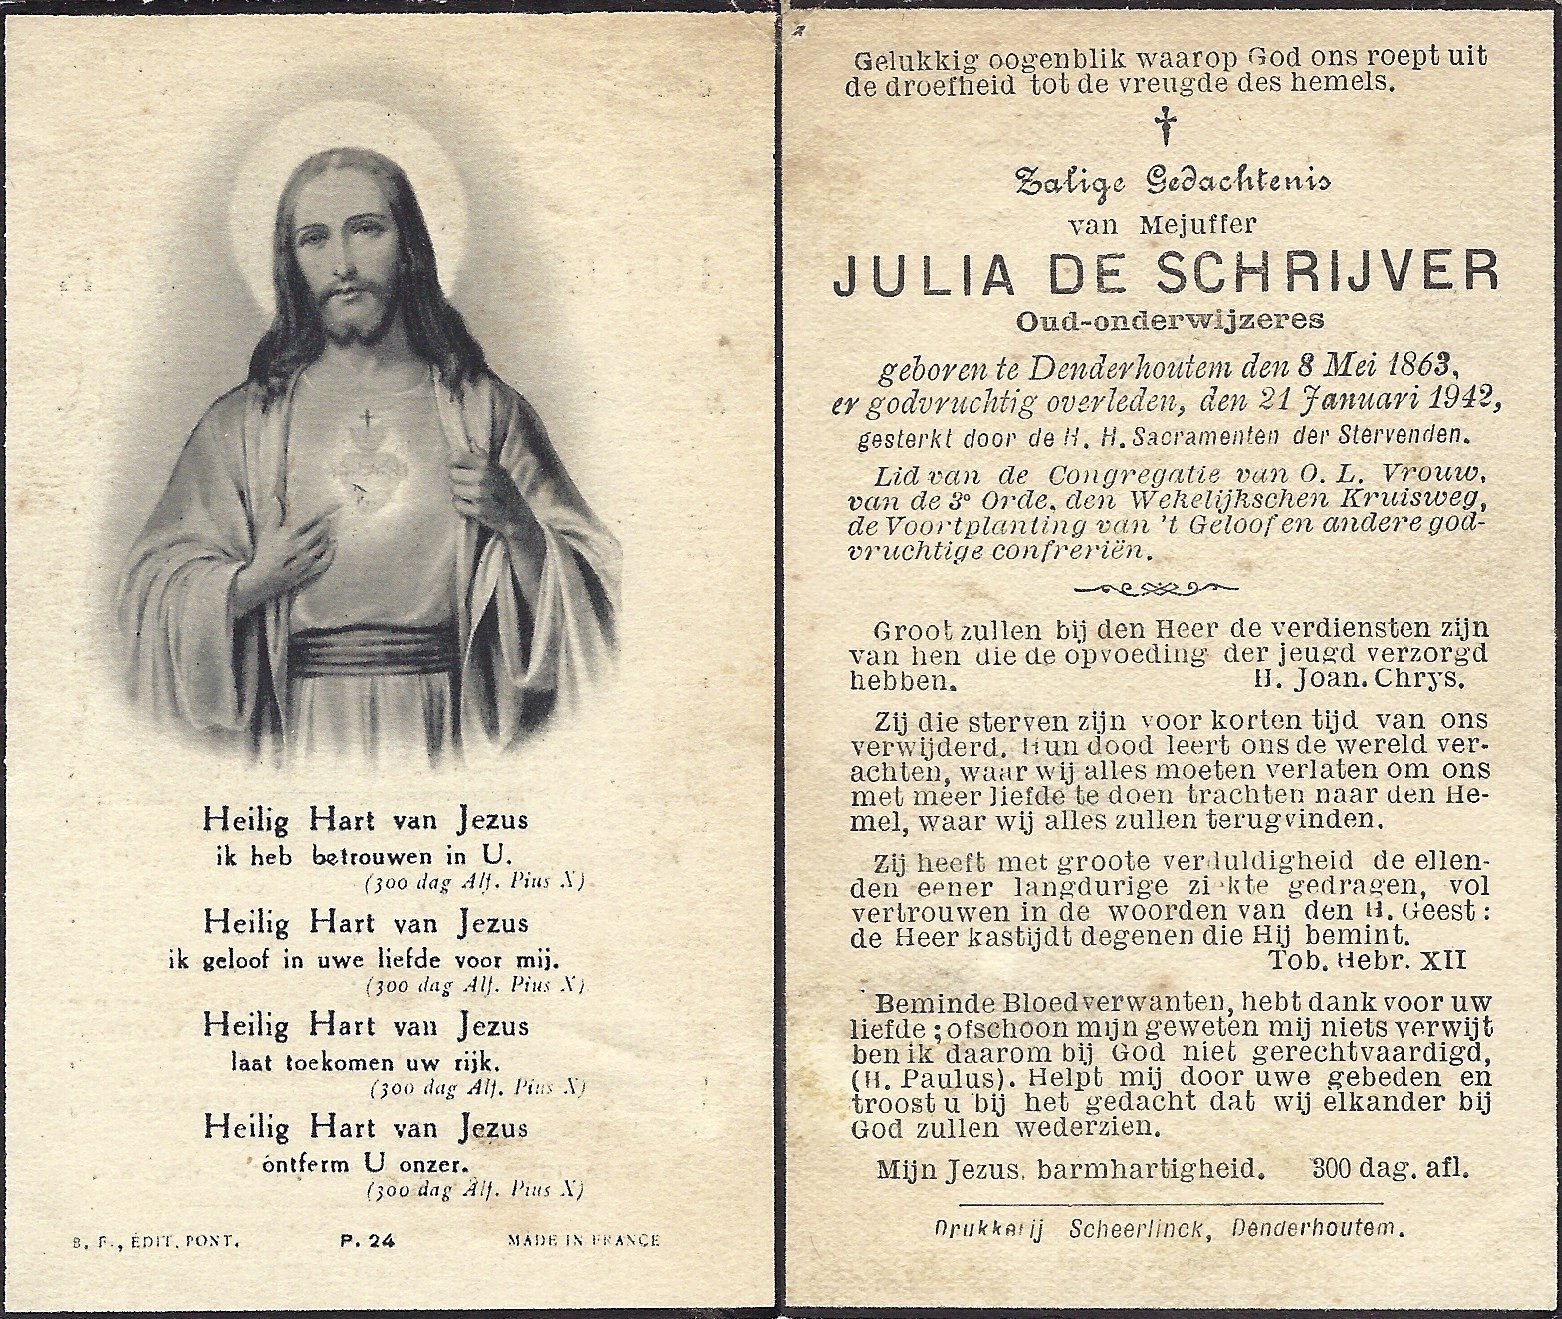 Heilig Hart van Jezus
ik heb betrouwen in U.
(300 dag Alf. Pius X)
Heilig Hart van Jezus
ik geloof in uwe liefde voor mij.
(300 dag Alf. Pius X)
Heilig Hart van Jezus
laat toekomen uw rijk.
(300 dag Alf. Pius X)
Heilig Hart van Jezus
ontferm U onzer.
(300 dag Alf. Pius X)
B. F., ÉDIT. PONT. P. 24 MADE IN FRANCE
Gelukkig oogenblik waarop God ons roept uit
de droefheid tot de vreugde des hemels.
Zalige Gedachtenis
van Mejuffer
JULIA DE SCHRIJVER
Oud-onderwijzeres
geboren te Denderhoutem den 8 Mei 1863,
er godvruchtig overleden, den 21 Januari 1942,
gesterkt door de H. H. Sacramenten der Stervenden.
Lid van de Congregatie van O. L. Vrouw,
van de 3e Orde, den Wekelijkschen Kruisweg,
de Voortplanting van 't Geloof en andere god-
vruchtige confreriën.
Groot zullen bij den Heer de verdiensten zijn
van hen die de opvoeding der jeugd verzorgd
hebben. H. Joan. Chrys.
Zij die sterven zijn voor korten tijd van ons
verwijderd. Hun dood leert ons de wereld ver-
achten, waar wij alles moeten verlaten om ons
met meer liefde te doen trachten naar den He-
mel, waar wij alles zullen terugvinden.
Zij heeft met groote verduldigheid de ellen-
den eener langdurige ziekte gedragen, vol
vertrouwen in de woorden van den H. Geest:
de Heer kastijdt degenen die Hij bemint.
Tob. Hebr. XII
Beminde Bloedverwanten, hebt dank voor uw
liefde; ofschoon mijn geweten mij niets verwijt
ben ik daarom bij God niet gerechtvaardigd,
(H. Paulus). Helpt mij door uwe gebeden en
troost u bij het gedacht dat wij elkander bij
God zullen wederzien.
Mijn Jezus, barmhartigheid. 300 dag. afl.
Drukkerij Scheerlinck, Denderhoutem.